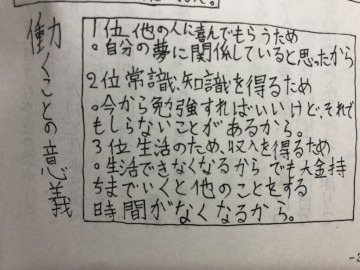 働くことの意義
1位 他の人に喜んでもらうため
○自分の夢に関係していると思ったから
2位 常識、知識を得るため
○今から勉強すればいいけど、それで
もしらないことがあるから。
3位 生活のため、収入を得るため
○生活できなくなるから でも大金持
ちまでいくと他のことをする
時間がなくなるから。